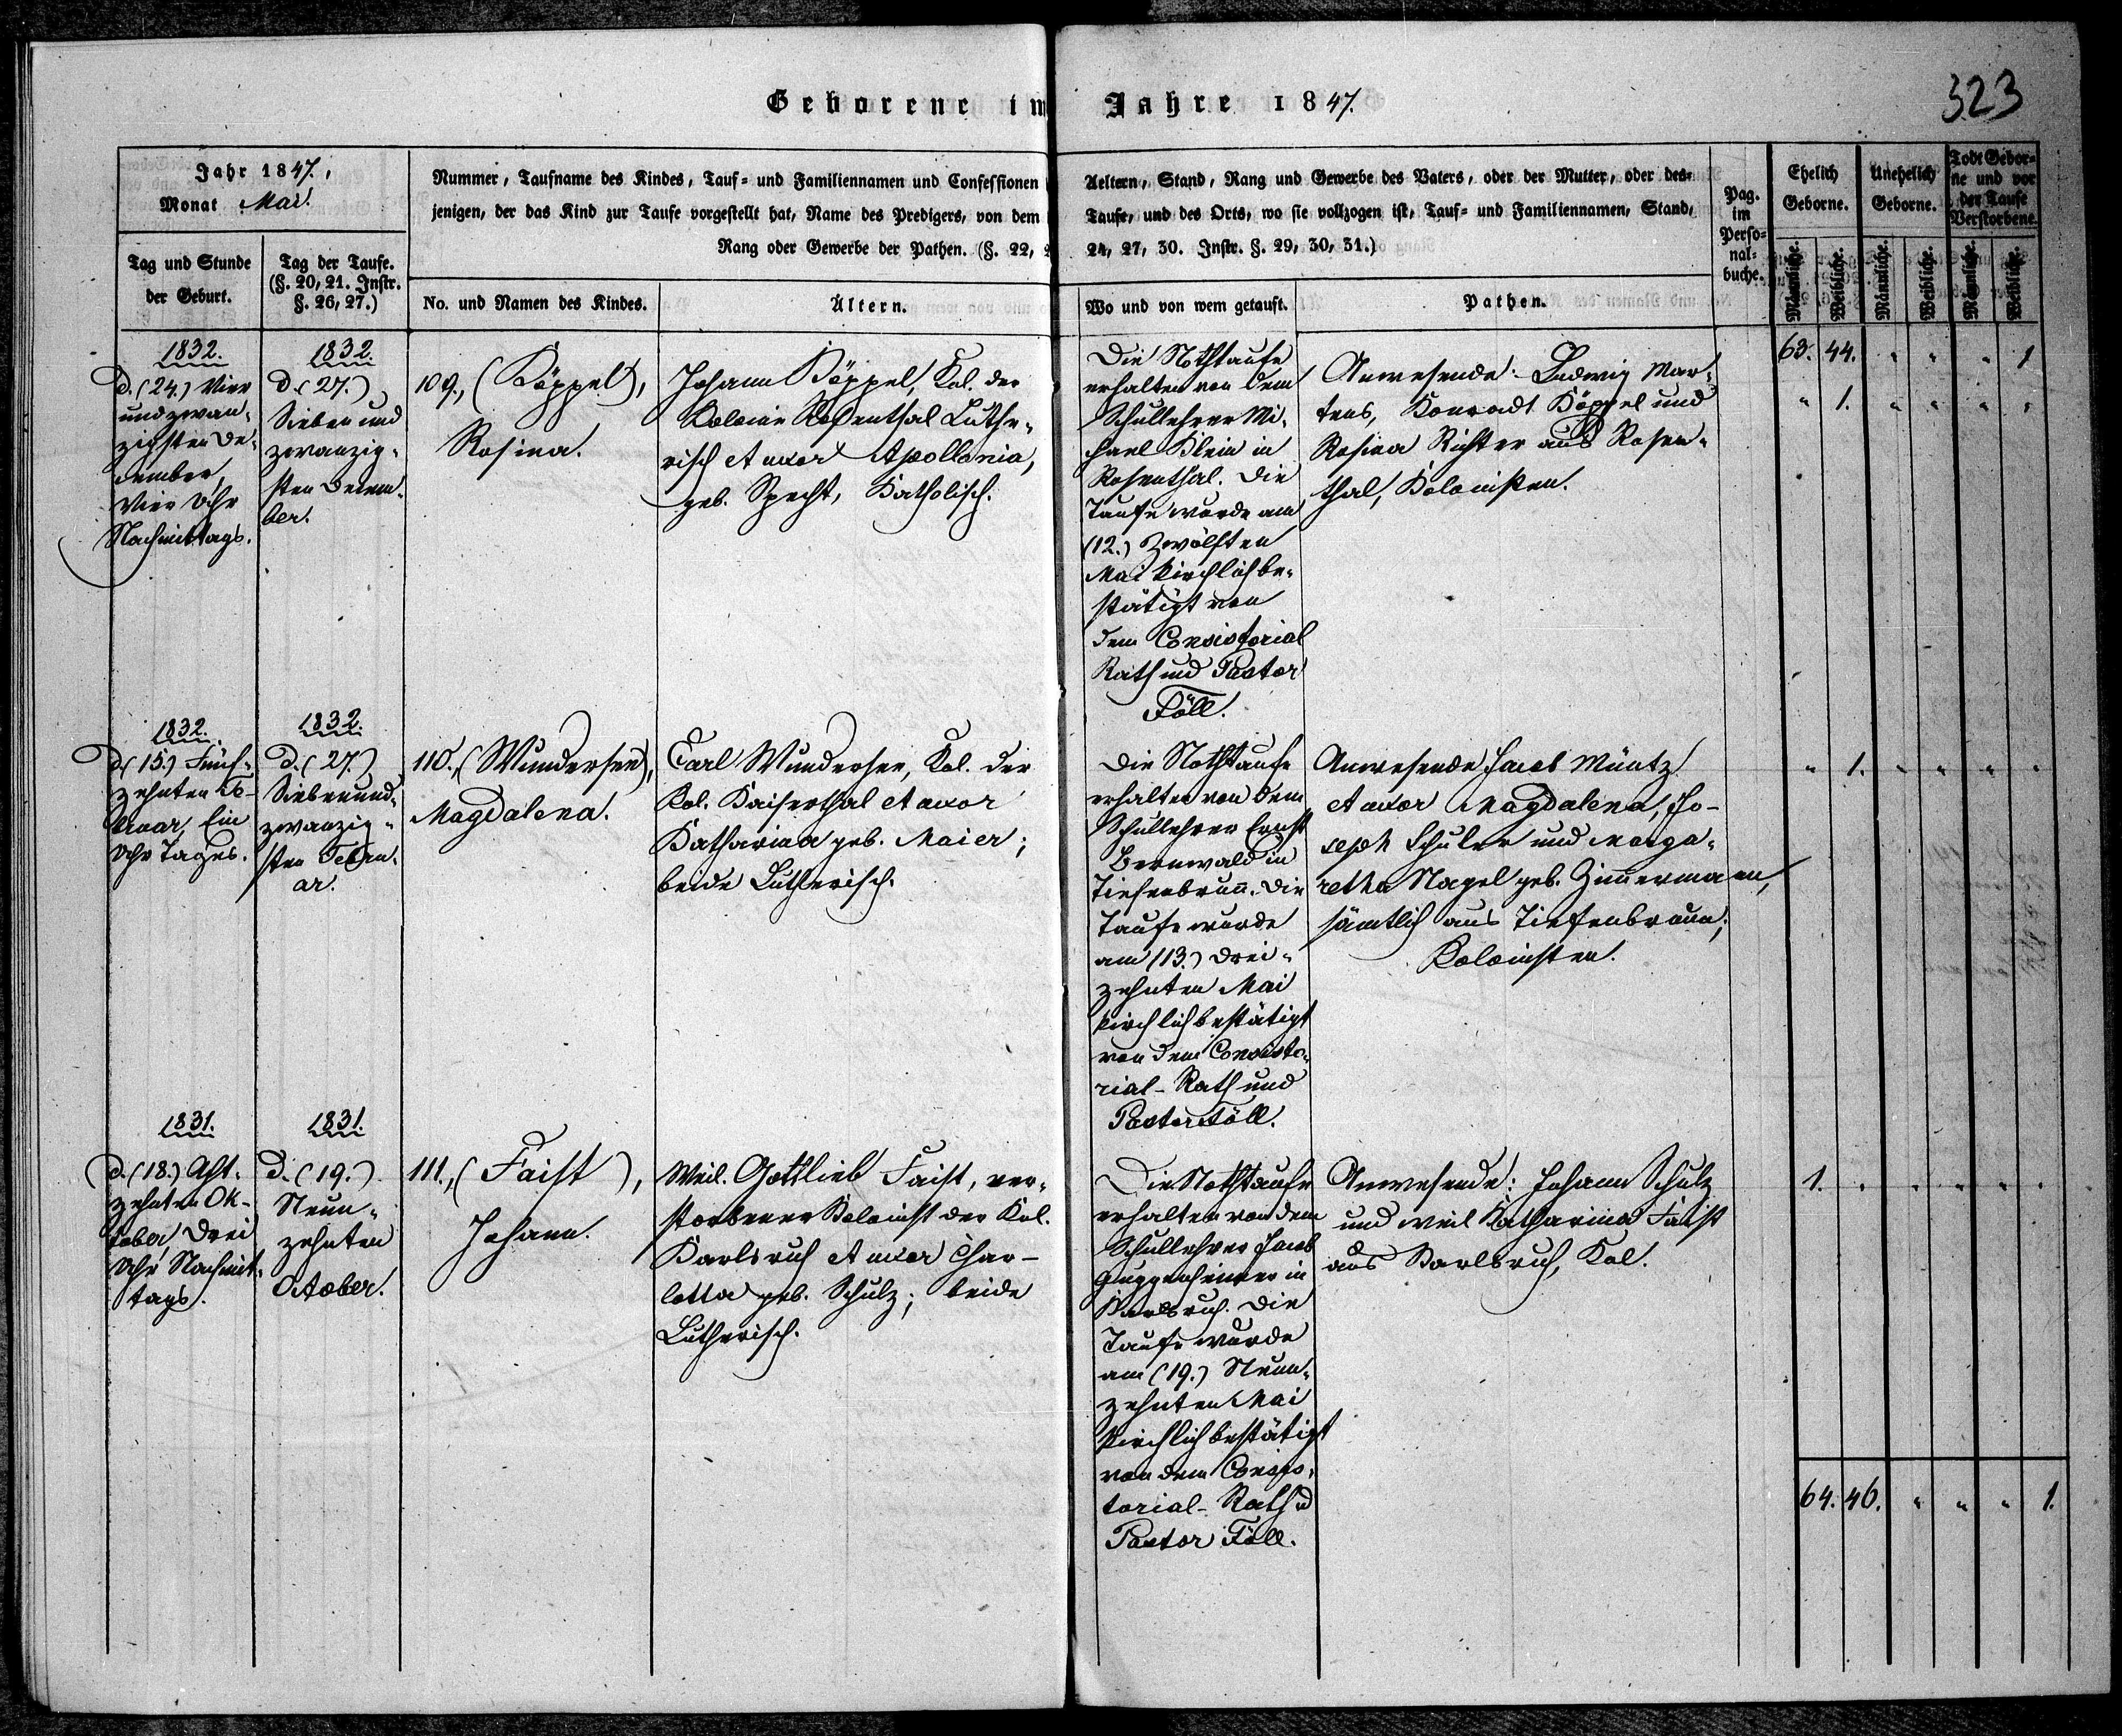 Geborene im Jahre 1847.
323
Jahr 1847.,
Monat Mai.
Nummer, Taufname des Kindes, Tauf- und Familiennamen und Confessionen
Aeltern, Stand, Rang und Gewerbe des Vaters, oder der Mutter, oder des-
jenigen, der das Kind zur Taufe vorgestellt hat, Name des Predigers, von dem
Taufe, und des Orts, wo sie vollzogen ist, Tauf- und Familiennamen, Stand,
Rang oder Gewerbe der Pathen. (§. 22,
24, 27, 30. Instr. §. 29, 30, 31.)
Pag.
im
Perso-
nal-
buche.
Ehelich
Geborne.
Unehelich
Geborne.
Todt Gebor-
ne und vor
der Taufe
Verstorbene.
Männliche.
Weibliche.
Männliche.
Weibliche.
Männliche.
Weibliche.
Tag und Stunde
der Geburt.
Tag der Taufe.
(§. 20, 21. Instr.
§. 26, 27.)
No. und Namen des Kindes.
Ältern.
Wo und von wem getauft.
Pathen.
63. 44. " " " 1
1832.
d. (24.) Vier
und zwan-
zigsten De-
cember,
Vier Uhr
Nachmittags.
1832.
d. (27.)
Sieben und
zwanzig-
sten Decem-
ber.
109., (Köppel),
Rosina.
Johann Köppel, Kol. der
Kolonie Rosenthal Luthe-
risch et uxor Apollonia,
geb. Specht, Katholisch.
Die Nothtaufe
erhalten von dem
Schullehrer Mi-
chael Klein in
Rosenthal. Die
Taufe wurde am
(12.) Zwölften
Mai kirchlich be-
stätigt von
dem Consistorial
Rath und Pastor
Föll.
Anwesende: Ludwig Mar-
tens, Konradt Köppel und
Rosina Richter aus Rosen-
thal, Kolonisten.
" 1. " " " "
1832.
d. (15.) Fünf-
zehnten Fe-
bruar, Ein
Uhr Tages.
1832.
d. (27.)
Siebenund-
zwanzig-
sten Febru-
ar.
110., (Wundersee),
Magdalena.
Carl Wundersee, Kol. der
Kol. Kaiserthal et uxor
Katharina geb. Maier;
beide Lutherisch.
Die Nothtaufe
erhalten von dem
Schullehrer Ernst
Bernwald in
Tiefenbrunn. Die
Taufe wurde
am (13.) Drei-
zehnten Mai
kirchlich bestätigt
von dem Consisto-
rial-Rath und
Pastor Föll.
Anwesende Jacob Müntz
et uxor Magdalena, Jo-
seph Schuler und Marga-
retha Nagel geb. Zimmermann,
sämtlich aus Tiefenbrunn;
Kolonisten.
" 1. " " " "
1831.
d. (18.) Acht-
zehnten Ok-
tober, Drei
Uhr Nachmit-
tags.
1831.
d. (19.)
Neun-
zehnten
October.
111., (Faist),
Johann.
Weil. Gottlieb Faist, ver-
storbener Kolonist der Kol.
Karlsruh et uxor Char-
lotta geb. Schulz; beide
Lutherisch.
Die Nothtaufe
erhalten von dem
Schullehrer Jacob
Guggenheimer in
Karlsruh. Die
Taufe wurde
am (19.) Neun-
zehnten Mai
kirchlich bestätigt
von dem Consis-
torial-Rath u
Pastor Föll.
Anwesende: Johann Schulz
und weil Katharina Faist
aus Karlsruh, Kol.
1. " " " " "
64. 46. " " " 1.